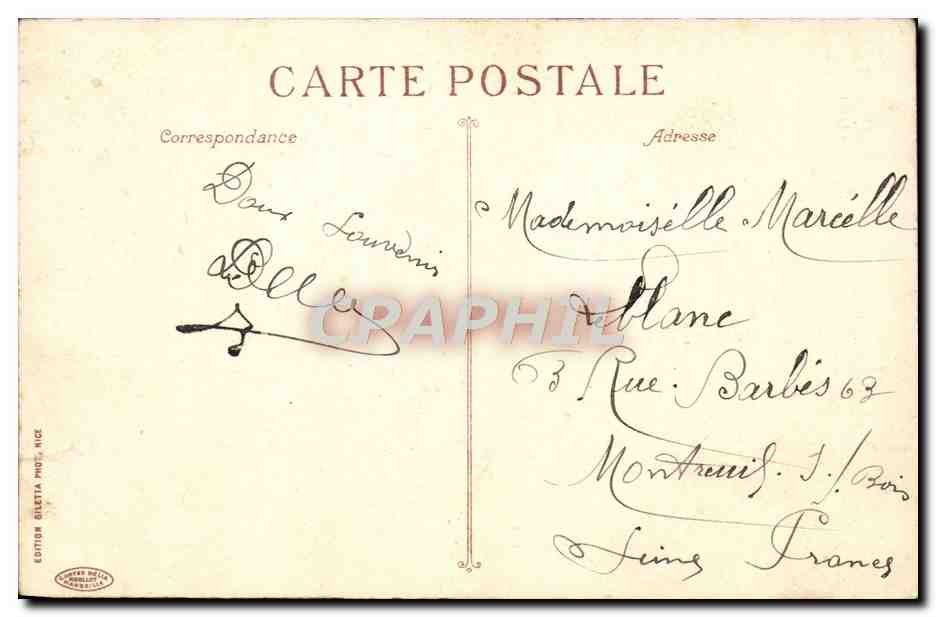 CARTE POSTALE
Correspondance
Doux Souvenir
Adresse
Mademoiselle Marcelle
Leblanc
63 Rue Barbès 63
Montreuil s/ Bois
Seine France
CPAPHIL
EDITION GILETTA PHOT., NICE
MARSEILLE